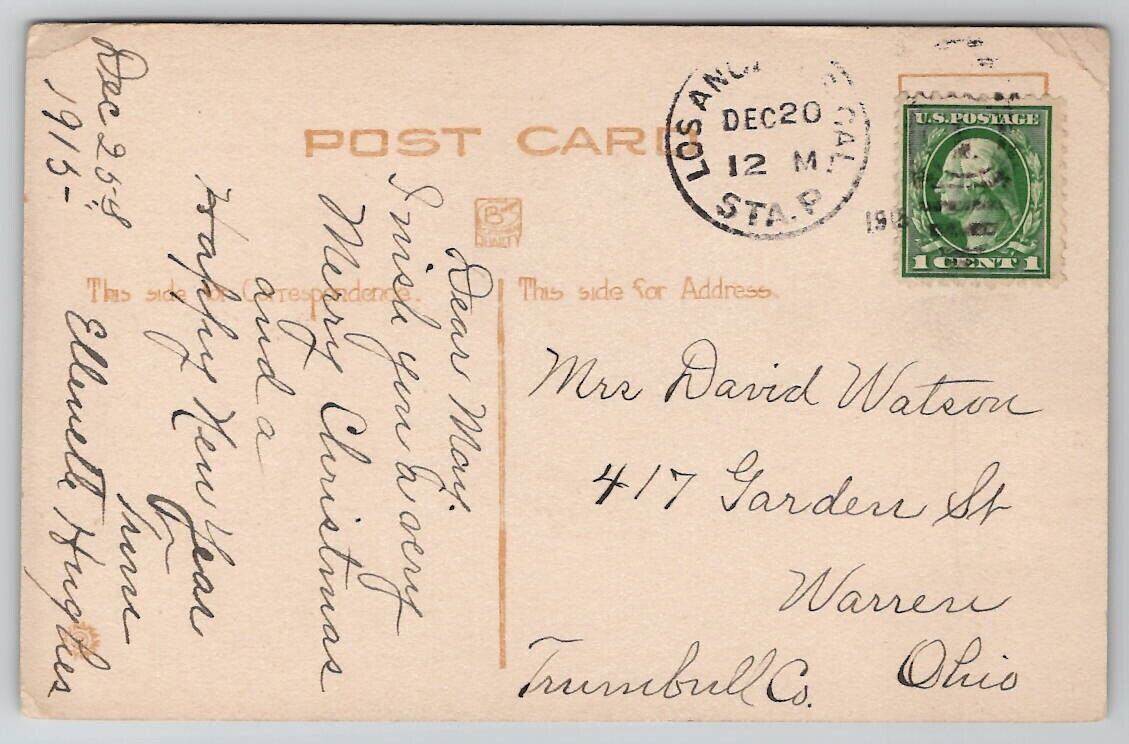 POST CARD
This side for Correspondence.
This side for Address.
LOS ANG CAL.
DEC 20
12 M
STA. P.
190
U.S. POSTAGE
1 CENT 1
Dear May.
I wish you a very
Merry Christmas
and a
Happy New Year
from
Ellemette Hughes
Dec 25th
1915-
Mrs David Watson
417 Garden St
Warren
Trumbull Co. Ohio
B
QUALITY